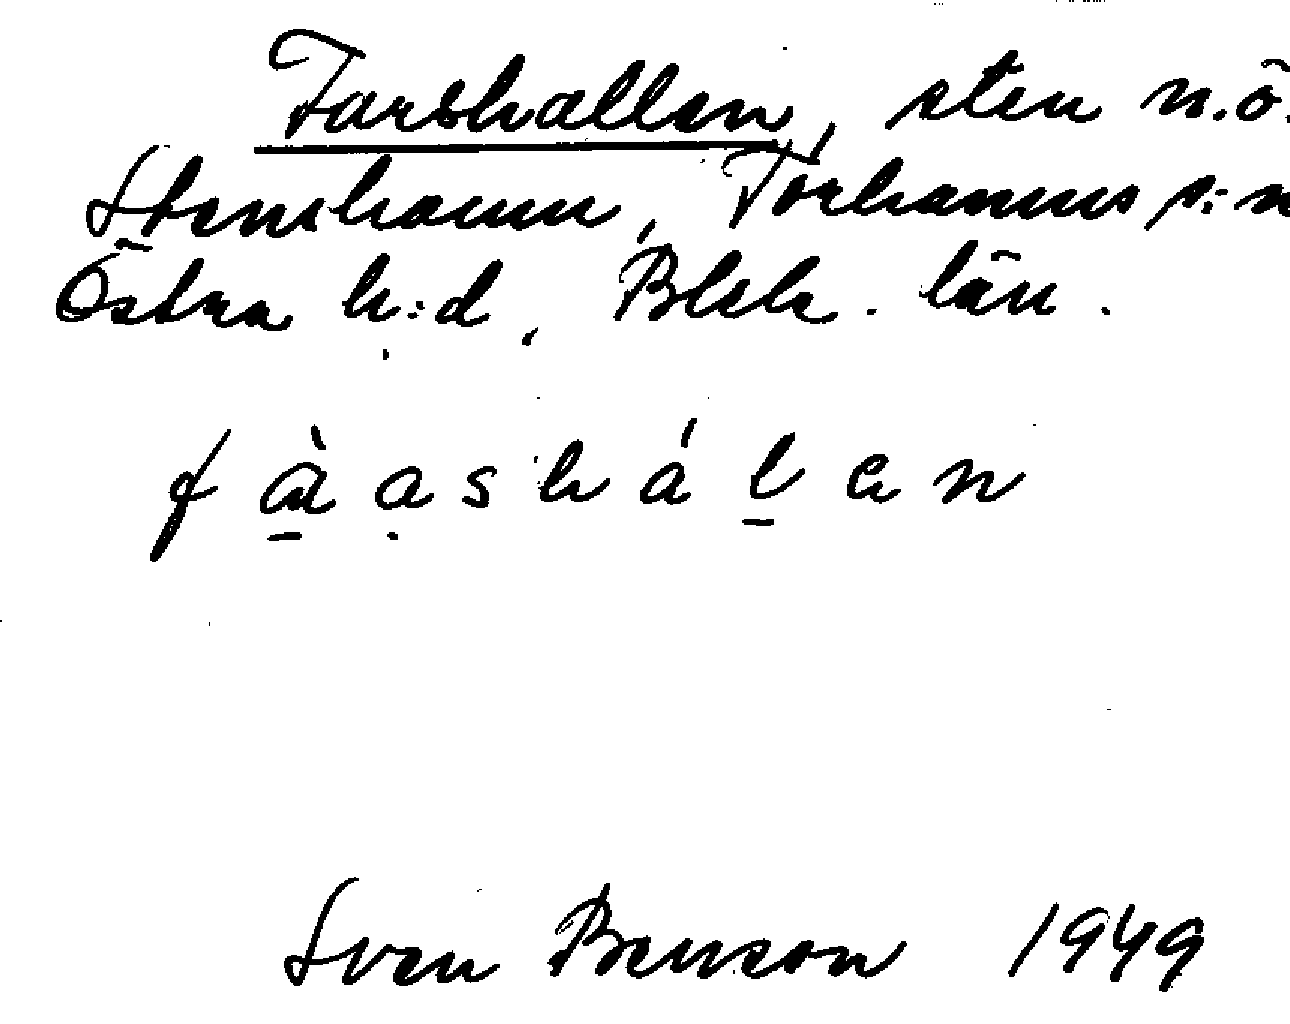 Farskallen, sten n.ö.
Stenshamn, Torhamns s:n
Östra h:d, Blek. län.
f à̱ ạ s k á ḻ e n
Sven Benson 1949